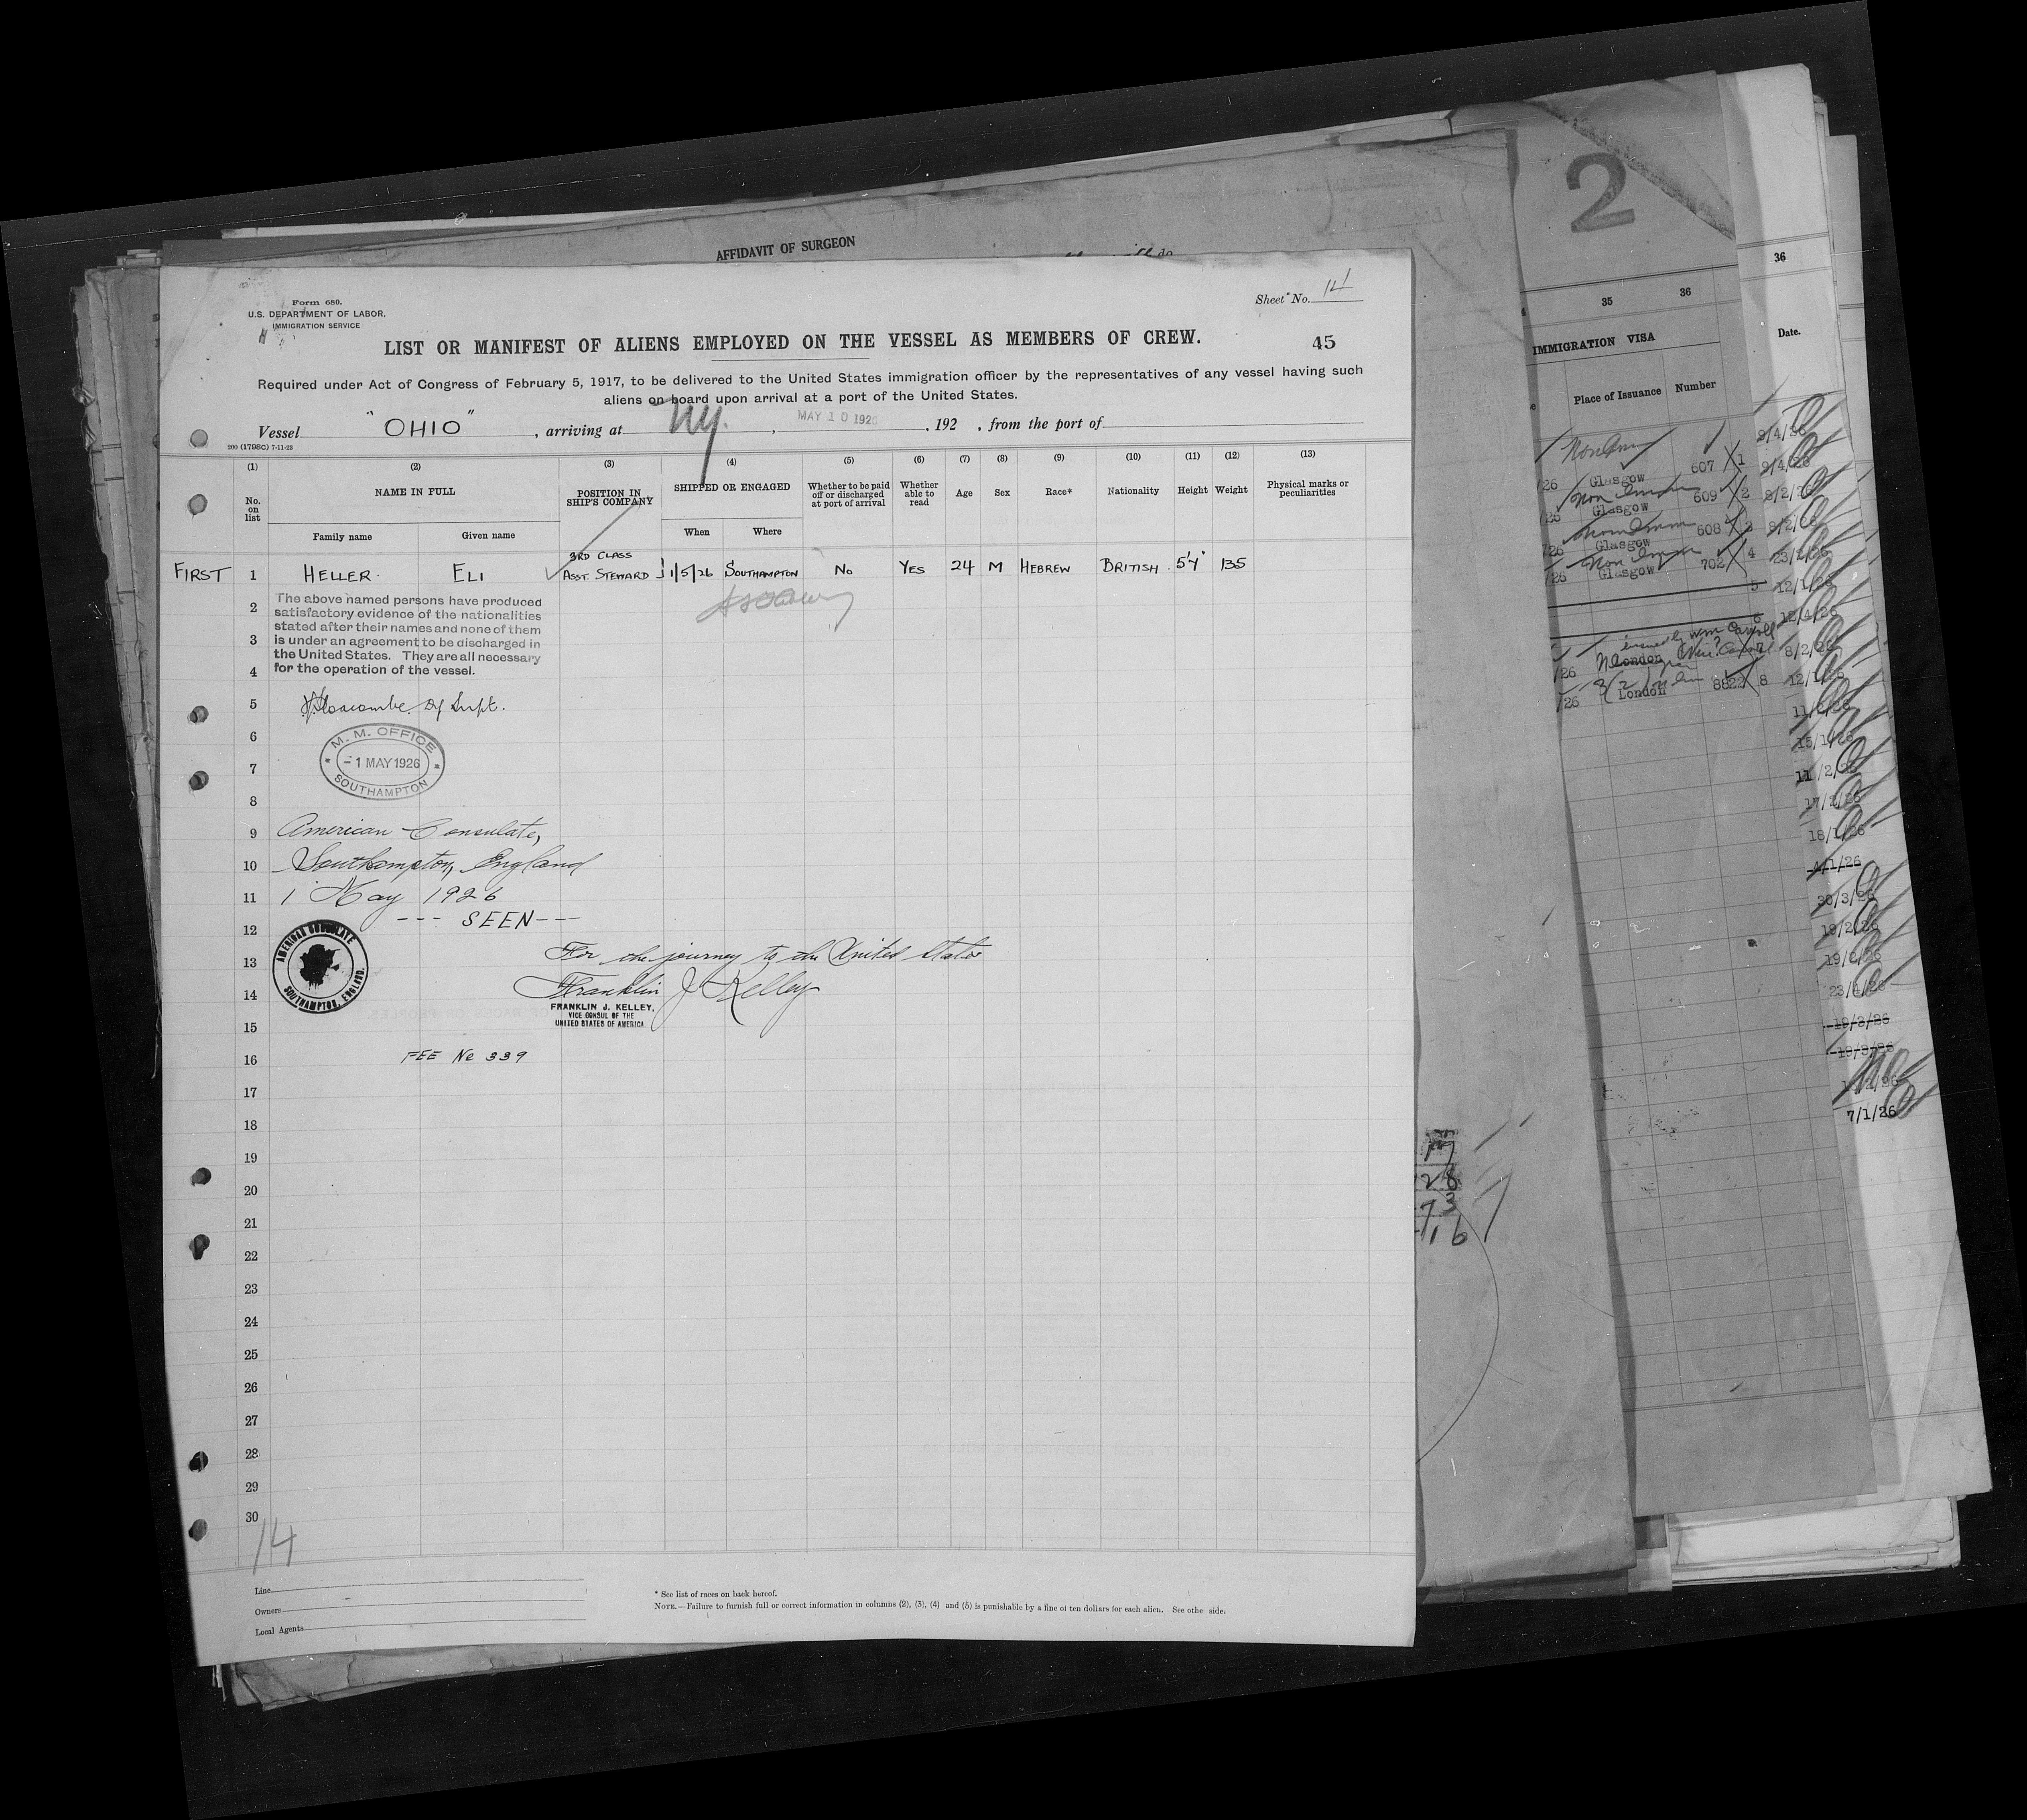 AFFIDAVIT OF SURGEON
2
Form 680.
U.S. DEPARTMENT OF LABOR.
IMMIGRATION SERVICE
Sheet No. 14
LIST OR MANIFEST OF ALIENS EMPLOYED ON THE VESSEL AS MEMBERS OF CREW.
45
Required under Act of Congress of February 5, 1917, to be delivered to the United States immigration officer by the representatives of any vessel having such
aliens on board upon arrival at a port of the United States.
Vessel "OHIO", arriving at NY., MAY 10 1926, 192 , from the port of
200 (1798C) 7-11-23
(1) (2) (3) (4) (5) (6) (7) (8) (9) (10) (11) (12) (13)
No. on list
NAME IN FULL
Family name Given name
POSITION IN SHIP'S COMPANY
SHIPPED OR ENGAGED
When Where
Whether to be paid off or discharged at port of arrival
Whether able to read
Age Sex Race* Nationality Height Weight
Physical marks or peculiarities
3RD CLASS
FIRST 1 HELLER. ELI ASST. STEWARD 1/5/26 SOUTHAMPTON NO YES 24 M HEBREW BRITISH 5'4" 135
2 The above named persons have produced
satisfactory evidence of the nationalities
stated after their names and none of them
3 is under an agreement to be discharged in
the United States. They are all necessary
4 for the operation of the vessel.
5 Dy Supt.
6 M. M. OFFICE
7 - 1 MAY 1926
SOUTHAMPTON
8
9 American Consulate,
10 Southampton, England
11 1 May 1926
--- SEEN ---
12 AMERICAN CONSULATE
13 For the journey to the United States
SOUTHAMPTON, ENGLAND.
14 Franklin J Kelley
FRANKLIN J. KELLEY,
VICE CONSUL OF THE
15 UNITED STATES OF AMERICA
16 FEE No 339
17
18
19
20
21
22
23
24
25
26
27
28
29
30
14
Line
Owners
Local Agents
* See list of races on back hereof.
NOTE.—Failure to furnish full or correct information in columns (2), (3), (4) and (5) is punishable by a fine of ten dollars for each alien. See othe side.
35 36
IMMIGRATION VISA
Place of Issuance Number
607 1
/26 Glasgow
609 2
/26 Glasgow
608 3
/26 Glasgow
702 4
/26 Glasgow
5
6
London 7
/26
/26 London 8822 8
36
Date.
9/4/26
9/4/26
8/2/26
8/2/26
23/2/26
12/1/26
12/4/26
8/2/26
12/1/26
11/2/26
15/1/26
11/2/26
17/2/26
18/1/26
4/1/26
30/3/26
19/2/26
19/2/26
23/4/26
19/3/26
19/3/26
7/1/26